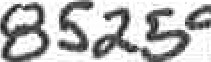 8525°